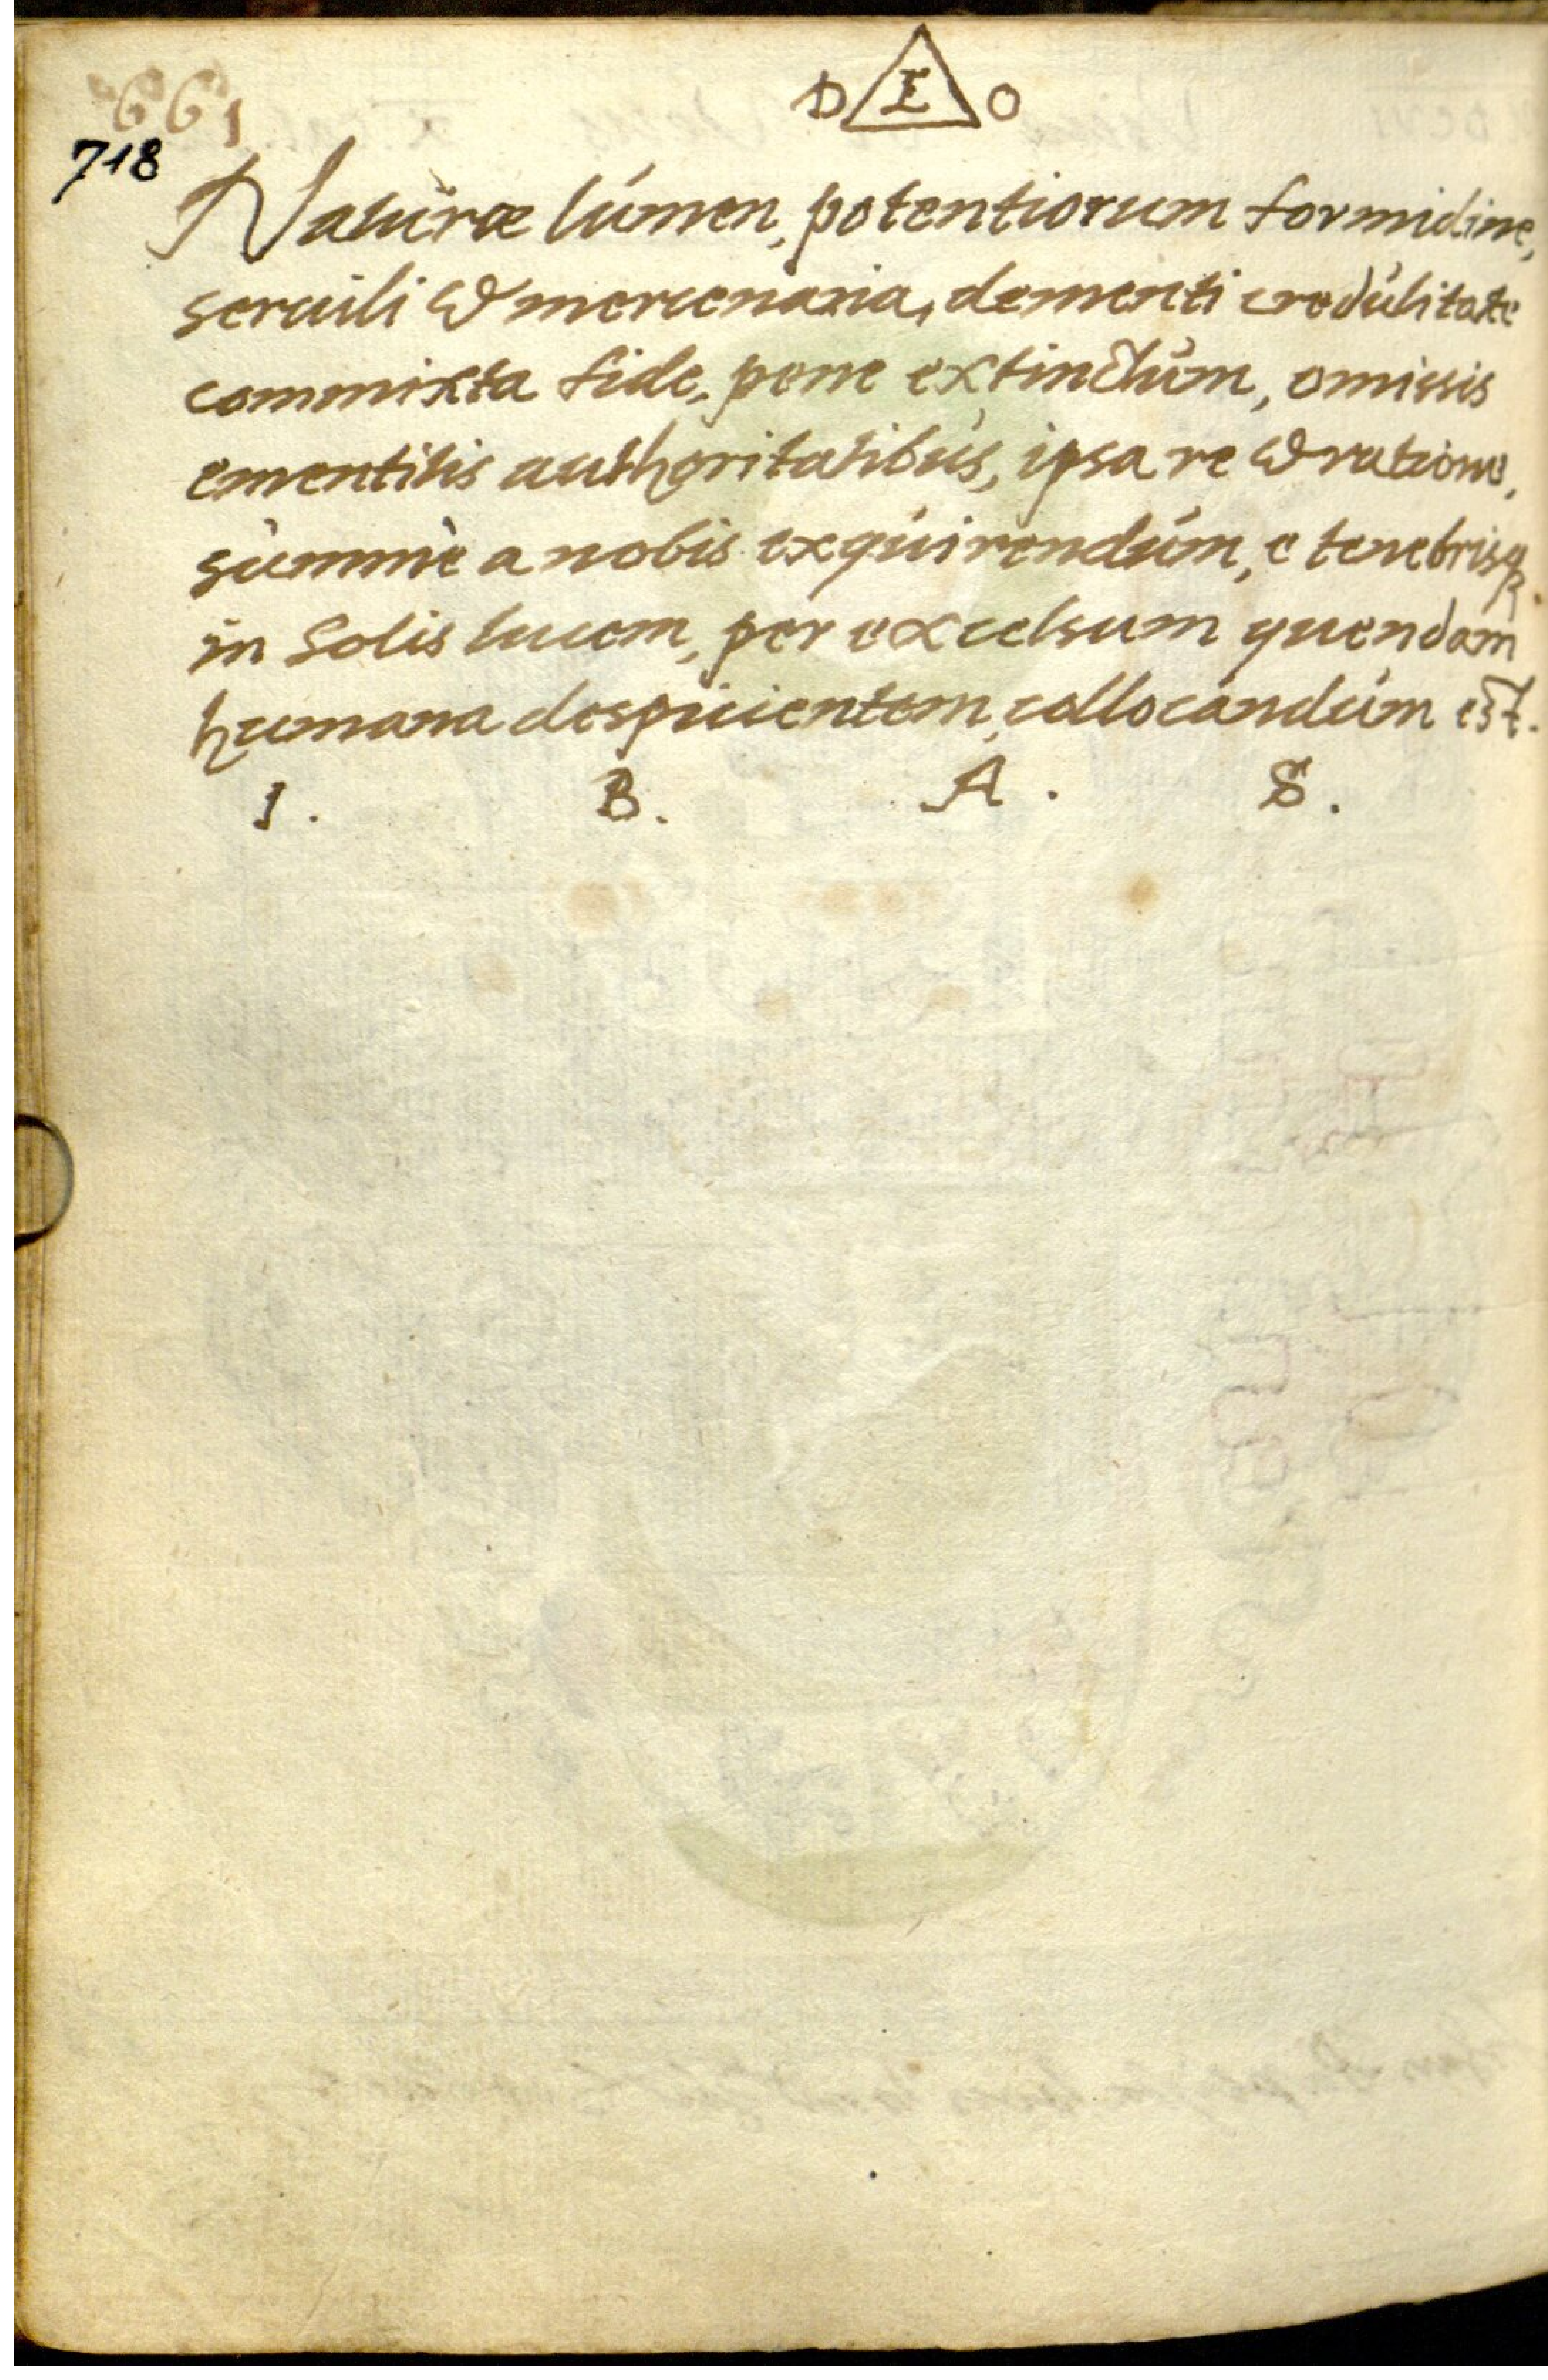 D E O
661
718
Naturæ lúmen, potentiorum formidine,
seruili & mercenaria, dementi credúlitate
commixta fide, pene extinctúm, omissis
ementitis authoritatibús, ipsa re & ratione,
súmmè a nobis exquirendúm, e tenebrisq3.
in Solis lucem, per excelsum quendam
humana despicientem, collocandúm est.
I. B. A. S.